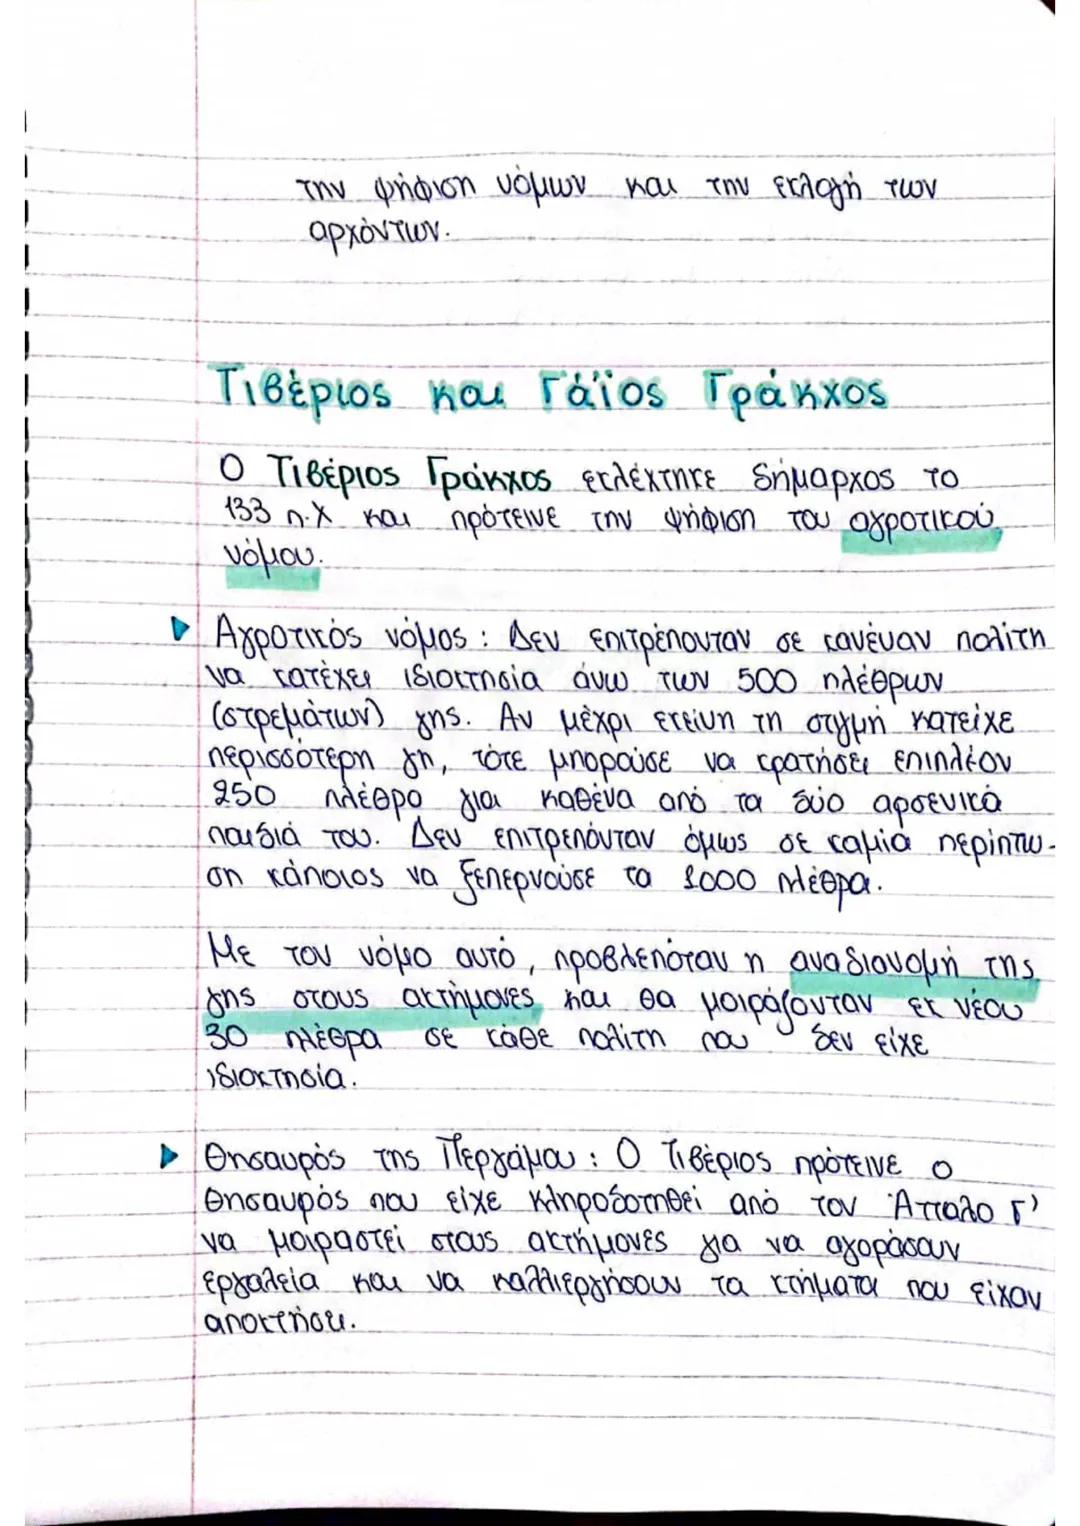 την ψήφιση νόμων και την εκλογή των
αρχόντων.
Τιβέριος και Γάϊος Γράκχος
Ο Τιβέριος Γράκχος εκλέχτηκε δήμαρχος το
133 π.Χ και πρότεινε την ψήφιση του αγροτικού
νόμου.
Αγροτικός νόμος: Δεν επιτρέπονταν σε κανέναν πολίτη
να κατέχει ιδιοκτησία άνω των 500 πλέθρων
(στρεμάτων) γης. Αν μέχρι εκείνη τη στιγμή κατείχε
περισσότερη γη, τότε μπορούσε να κρατήσει επιπλέον
250 πλέθρα για καθένα από τα δύο αρσενικά
παιδιά του. Δεν επιτρεπόνταν όμως σε καμία περίπτω-
ση κάποιος να ξεπερνούσε τα 1000 πλέθρα.
Με τον νόμο αυτό, προβλεπόταν η αναδιανομή της
γης στους ακτήμονες και θα μοιράζονταν εκ νέου
30 πλέθρα σε κάθε πολίτη που δεν είχε
ιδιοκτησία.
Θησαυρός της Περγάμου: Ο Τιβέριος πρότεινε ο
θησαυρός που είχε κληροδοτηθεί από τον Άτταλο Γ'
να μοιραστεί στους ακτήμονες για να αγοράσουν
εργαλεία και να καλλιεργήσουν τα κτήματα που είχαν
αποκτήσει.